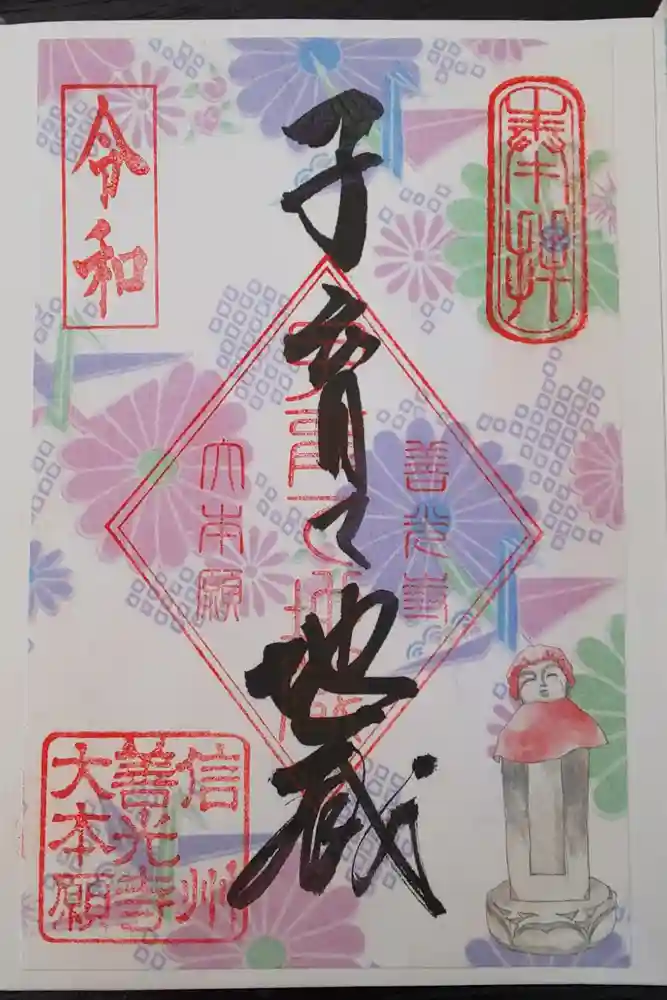 奉拝
子育て地蔵
令和
善光寺
子育て地蔵
大本願
信州
善光寺
大本願